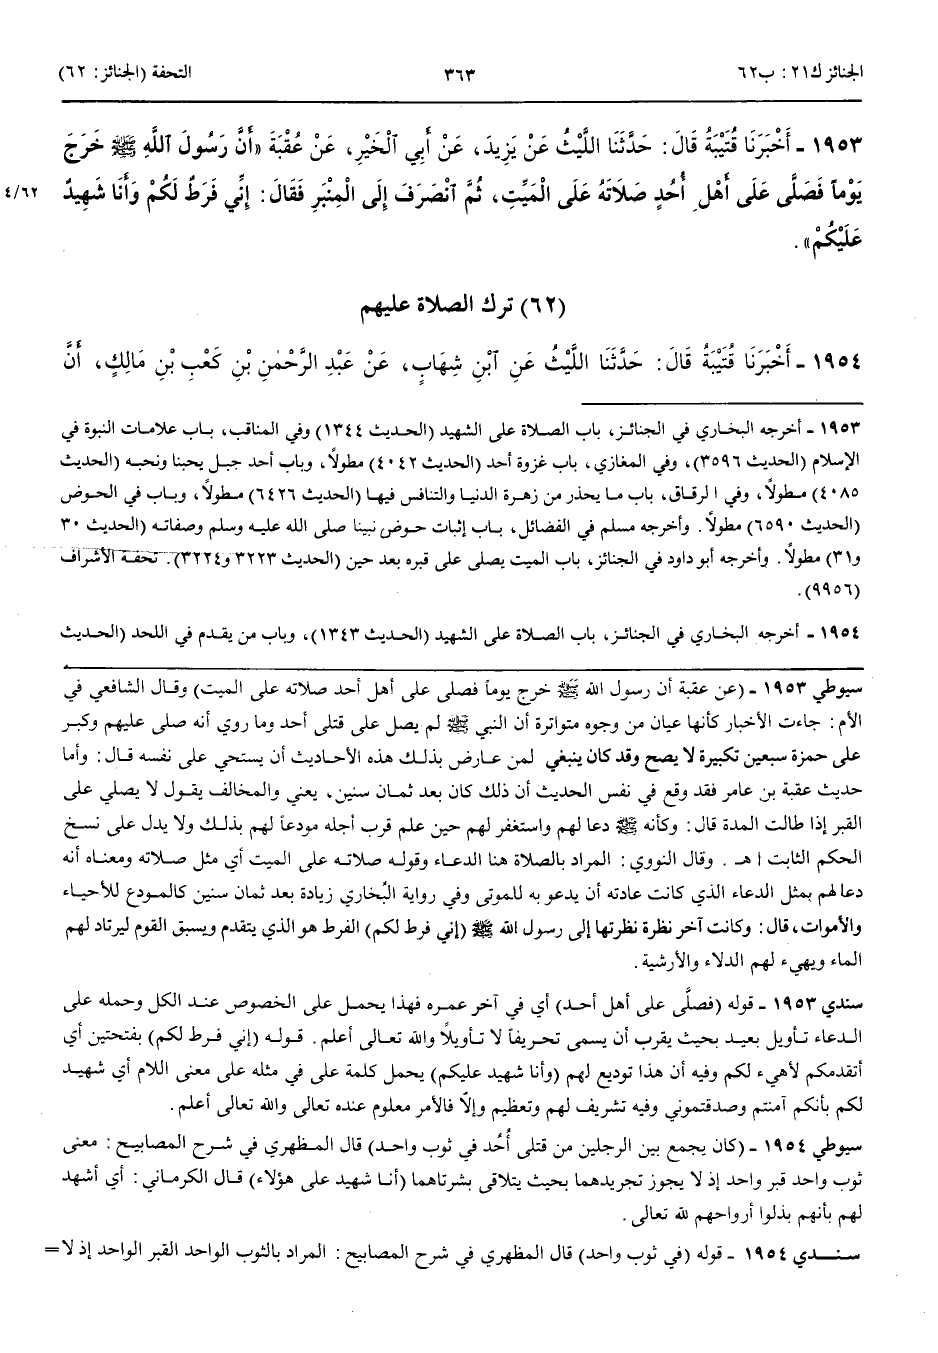 الجنائز ك٢١: ب٦٢ ٣٦٣ التحفة (الجنائز: ٦٢)
١٩٥٣ - أَخْبَرَنَا قُتَيْبَةُ قَالَ: حَدَّثَنَا اللَّيْثُ عَنْ يَزِيدَ، عَنْ أَبِي ٱلْخَيْرِ، عَنْ عُقْبَةَ «أَنَّ رَسُولَ ٱللَّهِ ﷺ خَرَجَ
يَوْماً فَصَلَّى عَلَى أَهْلِ أُحُدٍ صَلَاتَهُ عَلَى الْمَيِّتِ، ثُمَّ ٱنْصَرَفَ إِلَى الْمِنْبَرِ فَقَالَ: إِنِّي فَرَطٌ لَكُمْ وَأَنَا شَهِيدٌ ٤/٦٢
عَلَيْكُمْ».
(٦٢) ترك الصلاة عليهم
١٩٥٤ - أَخْبَرَنَا قُتَيْبَةُ قَالَ: حَدَّثَنَا اللَّيْثُ عَنِ ٱبْنِ شِهَابٍ، عَنْ عَبْدِ الرَّحْمٰنِ بْنِ كَعْبِ بْنِ مَالِكٍ، أَنَّ
١٩٥٣ - أخرجه البخاري في الجنائز، باب الصلاة على الشهيد (الحديث ١٣٤٤) وفي المناقب، باب علامات النبوة في
الإسلام (الحديث ٣٥٩٦)، وفي المغازي، باب غزوة أحد (الحديث ٤٠٤٢) مطولاً، وباب أحد جبل يحبنا ونحبه (الحديث
٤٠٨٥) مطولاً، وفي الرقاق، باب ما يحذر من زهرة الدنيا والتنافس فيها (الحديث ٦٤٢٦) مطولاً، وباب في الحوض
(الحديث ٦٥٩٠) مطولاً. وأخرجه مسلم في الفضائل، باب إثبات حوض نبينا صلى الله عليه وسلم وصفاته (الحديث ٣٠
و٣١) مطولاً. وأخرجه أبو داود في الجنائز، باب الميت يصلى على قبره بعد حين (الحديث ٣٢٢٣ و٣٢٢٤). تحفة الأشراف
(٩٩٥٦).
١٩٥٤ - أخرجه البخاري في الجنائز، باب الصلاة على الشهيد (الحديث ١٣٤٣)، وباب من يقدم في اللحد (الحديث
سيوطي ١٩٥٣ - (عن عقبة أن رسول الله ﷺ خرج يوماً فصلى على أهل أحد صلاته على الميت) وقال الشافعي في
الأم: جاءت الأخبار كأنها عيان من وجوه متواترة أن النبي ﷺ لم يصل على قتلى أحد وما روي أنه صلى عليهم وكبر
على حمزة سبعين تكبيرة لا يصح وقد كان ينبغي لمن عارض بذلك هذه الأحاديث أن يستحي على نفسه قال: وأما
حديث عقبة بن عامر فقد وقع في نفس الحديث أن ذلك كان بعد ثمان سنين، يعني والمخالف يقول لا يصلي على
القبر إذا طالت المدة قال: وكأنه ﷺ دعا لهم واستغفر لهم حين علم قرب أجله مودعاً لهم بذلك ولا يدل على نسخ
الحكم الثابت اهـ. وقال النووي: المراد بالصلاة هنا الدعاء وقوله صلاته على الميت أي مثل صلاته ومعناه أنه
دعا لهم بمثل الدعاء الذي كانت عادته أن يدعو به للموتى وفي رواية البُخاري زيادة بعد ثمان سنين كالمودع للأحياء
والأموات، قال: وكانت آخر نظرة نظرتها إلى رسول الله ﷺ (إني فرط لكم) الفرط هو الذي يتقدم ويسبق القوم ليرتاد لهم
الماء ويهيء لهم الدلاء والأرشية.
سندي ١٩٥٣ - قوله (فصلَّى على أهل أحد) أي في آخر عمره فهذا يحمل على الخصوص عند الكل وحمله على
الدعاء تأويل بعيد بحيث يقرب أن يسمى تحريفاً لا تأويلاً والله تعالى أعلم. قوله (إني فرط لكم) بفتحتين أي
أتقدمكم لأهيء لكم وفيه أن هذا توديع لهم (وأنا شهيد عليكم) يحمل كلمة على في مثله على معنى اللام أي شهيد
لكم بأنكم آمنتم وصدقتموني وفيه تشريف لهم وتعظيم وإلاّ فالأمر معلوم عنده تعالى والله تعالى أعلم.
سيوطي ١٩٥٤ - (كان يجمع بين الرجلين من قتلى أُحُد في ثوب واحد) قال المظهري في شرح المصابيح: معنى
ثوب واحد قبر واحد إذ لا يجوز تجريدهما بحيث يتلاقى بشرتاهما (أنا شهيد على هؤلاء) قال الكرماني: أي أشهد
لهم بأنهم بذلوا أرواحهم لله تعالى.
سندي ١٩٥٤ - قوله (في ثوب واحد) قال المظهري في شرح المصابيح: المراد بالثوب الواحد القبر الواحد إذ لا=